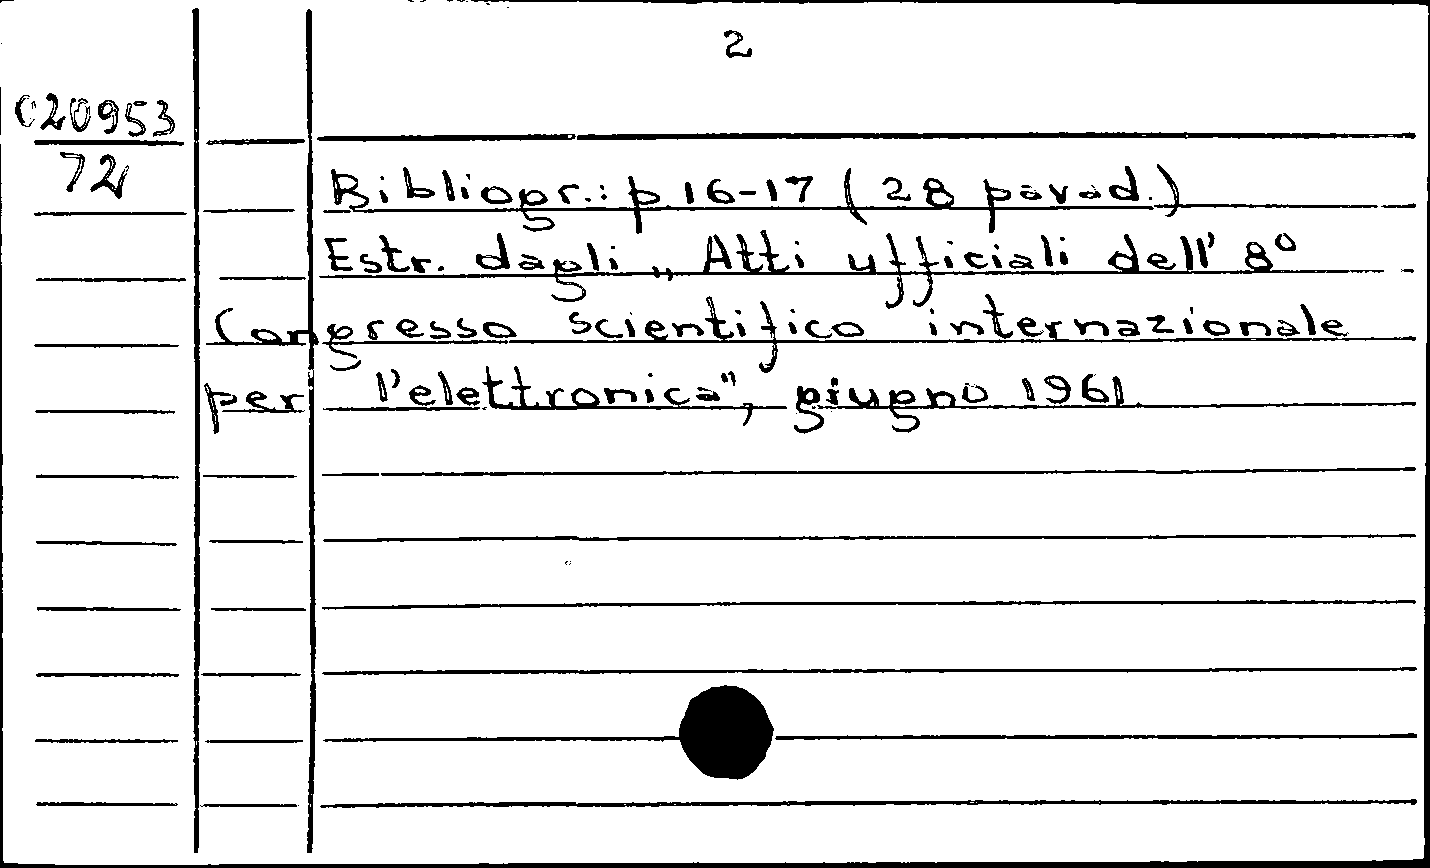 2
020953
72
Bibliogr.: p 16-17 ( 28 pavad.)
Estr. dagli „ Atti ufficiali dell' 8°
Congresso scientifico internazionale
per l'elettronica", giugno 1961.